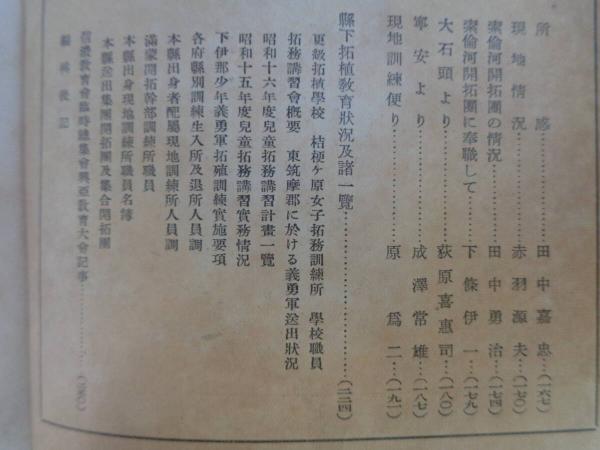 所感……田中嘉忠…(一六七)
現地情況……赤羽源夫…(一七〇)
索倫河開拓團の情況……田中勇治…(一七四)
索倫河開拓團に奉職して……下條伊一…(一七九)
大石頭より……荻原喜惠司…(一八〇)
寧安より……成澤常雄…(一八七)
現地訓練便り……原爲二…(一九一)
縣下拓植教育狀況及諸一覽……(二二四)
更級拓植學校 桔梗ケ原女子拓務訓練所 學校職員
拓務講習會概要 東筑摩郡に於ける義勇軍送出狀況
昭和十六年度兒童拓務講習計畫一覽
昭和十五年度兒童拓務講習實務情況
下伊那少年義勇軍拓殖訓練實施要項
各府縣別訓練生入所及退所人員調
本縣出身者配屬現地訓練所人員調
滿蒙開拓幹部訓練所職員
本縣出身現地訓練所職員名簿
本縣送出集團開拓團及集合開拓團
信濃教育會臨時總集會興亞教育大會記事……
編輯後記